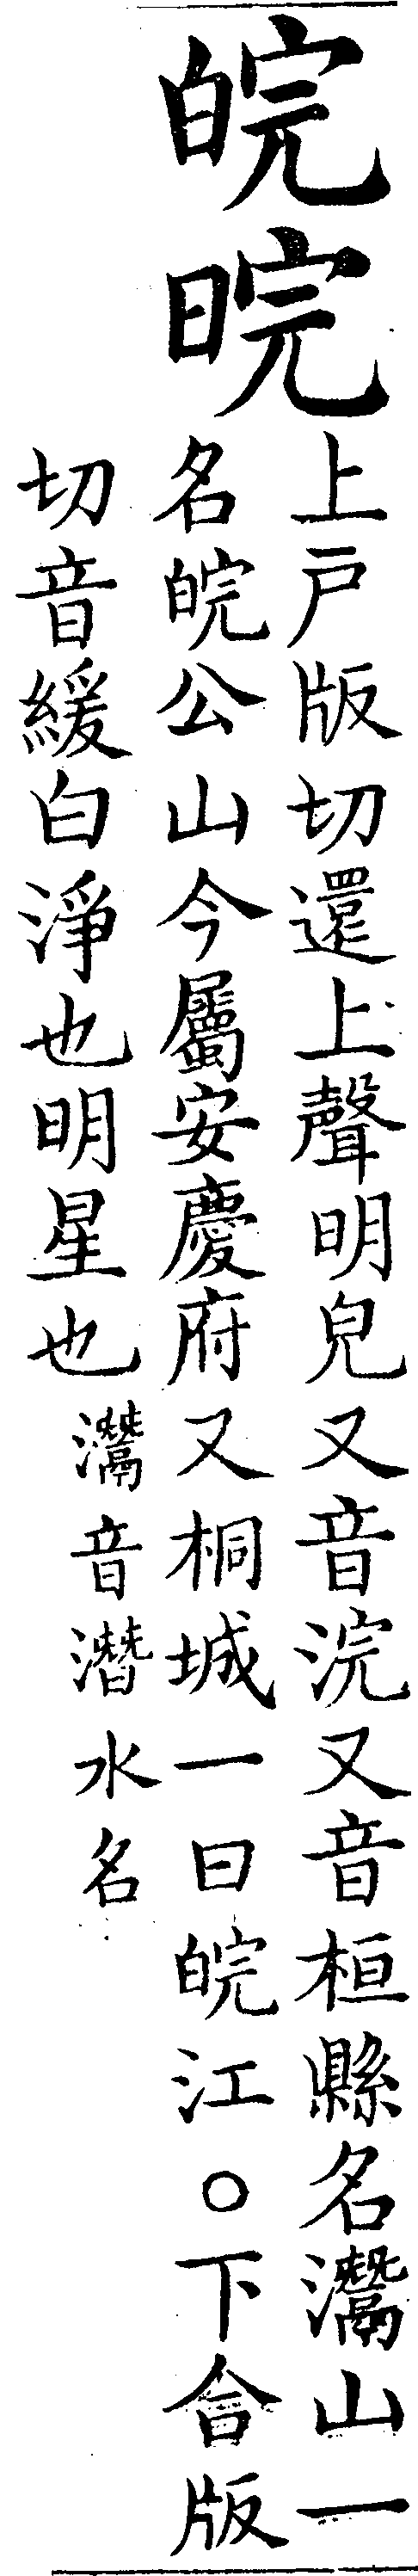 皖晥
上戸版切還上聲明皃又音浣又音桓縣名灊山一
名皖公山今屬安慶府又桐城一曰皖江○下合版
切音緩白淨也明星也灊音潛水名